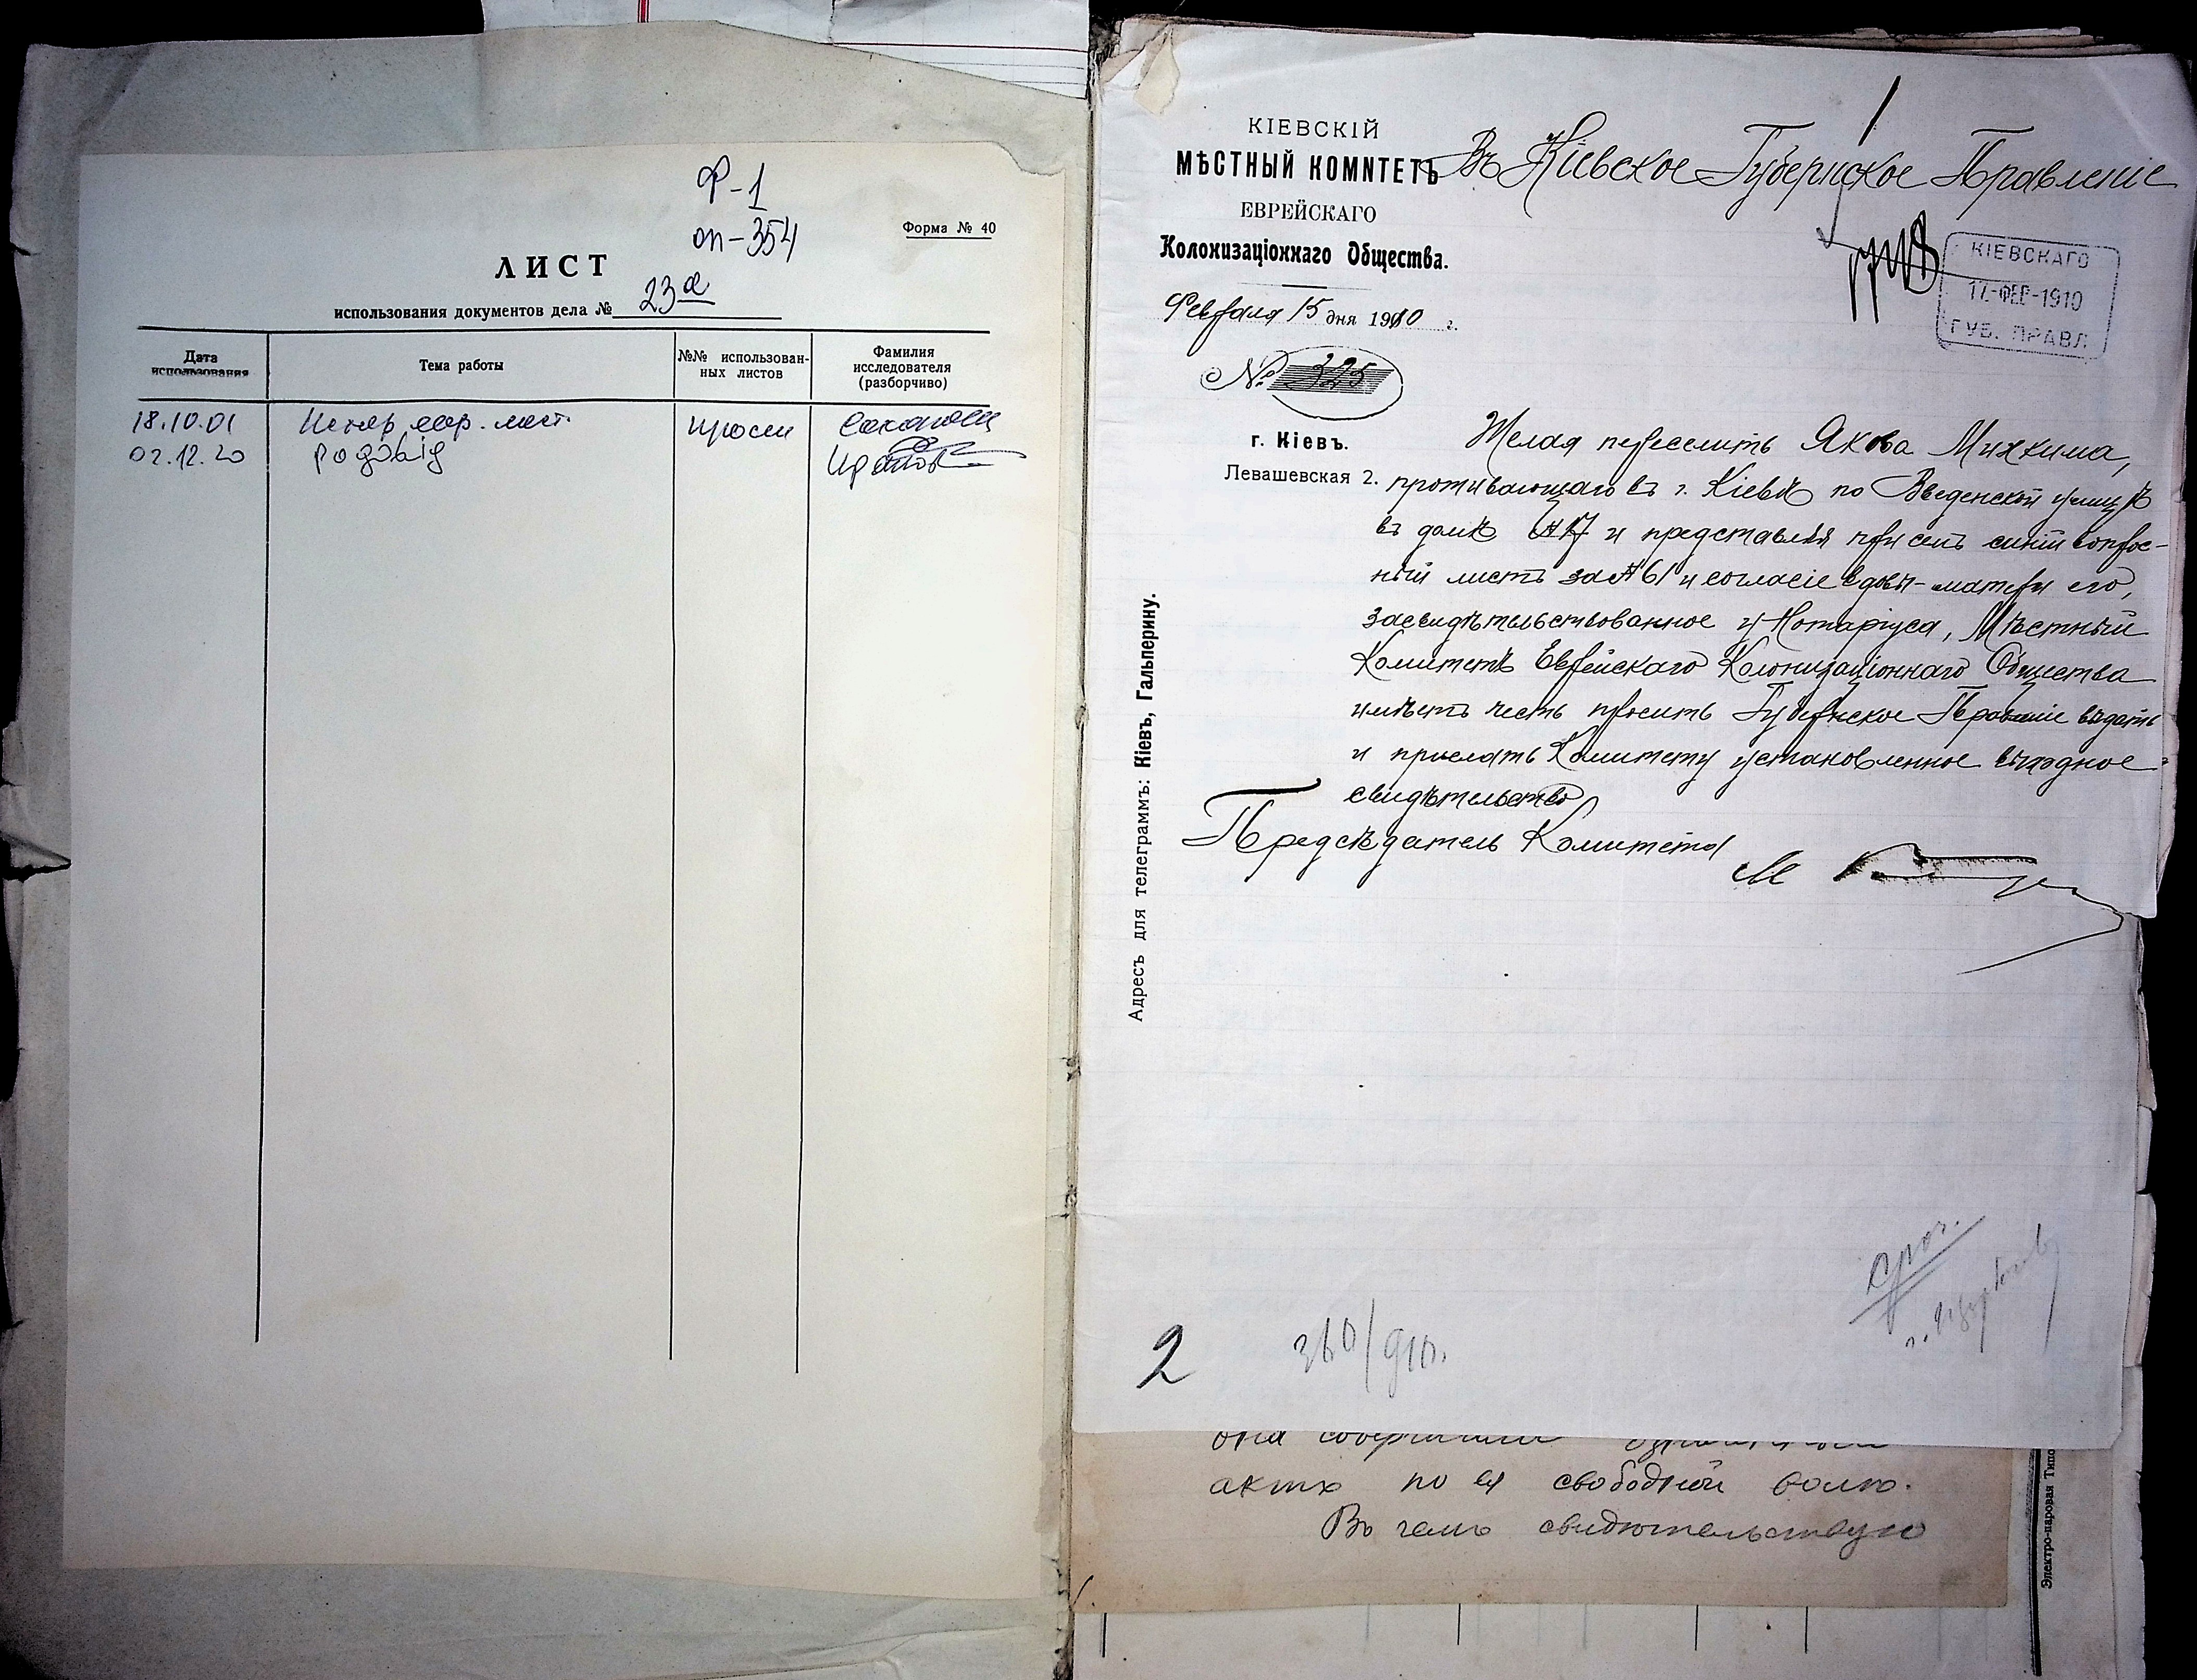 Ф-1
оп-354
Форма № 40
ЛИСТ
использования документов дела № 23а
Дата использования
Тема работы
№№ использован-
ных листов
Фамилия
исследователя
(разборчиво)
18.10.01
02.12.20 родовід
1
КІЕВСКІЙ
МѢСТНЫЙ КОМИТЕТЪ
ЕВРЕЙСКАГО
Колонизаціоннаго Общества.
Февраля 15 дня 1910 г.
№ 325
г. Кіевъ.
Левашевская 2.
Адресъ для телеграммъ: Кіевъ, Гальперину.
Въ Кіевское Губернское Правленіе
КІЕВСКАГО
17-ФЕВ-1910
ГУБ. ПРАВЛ
Желая переселить Якова
проживающаго въ г. Кіевѣ по Введенской улицѣ
въ домѣ №17 и представляя при семъ синій опрос-
ный листъ за № 61 и согласіе вдовы-матери его,
засвидѣтельствованное у Нотаріуса, Мѣстный
Комитетъ Еврейскаго Колонизаціоннаго Общества
имѣетъ честь просить Губернское Правленіе выдать
и прислать Комитету установленное выходное
свидѣтельство
Предсѣдатель Комитета
М
2
360/910.
акта по ея свободной волѣ.
Въ чемъ свидѣтельствую
Электро-паровая Типо